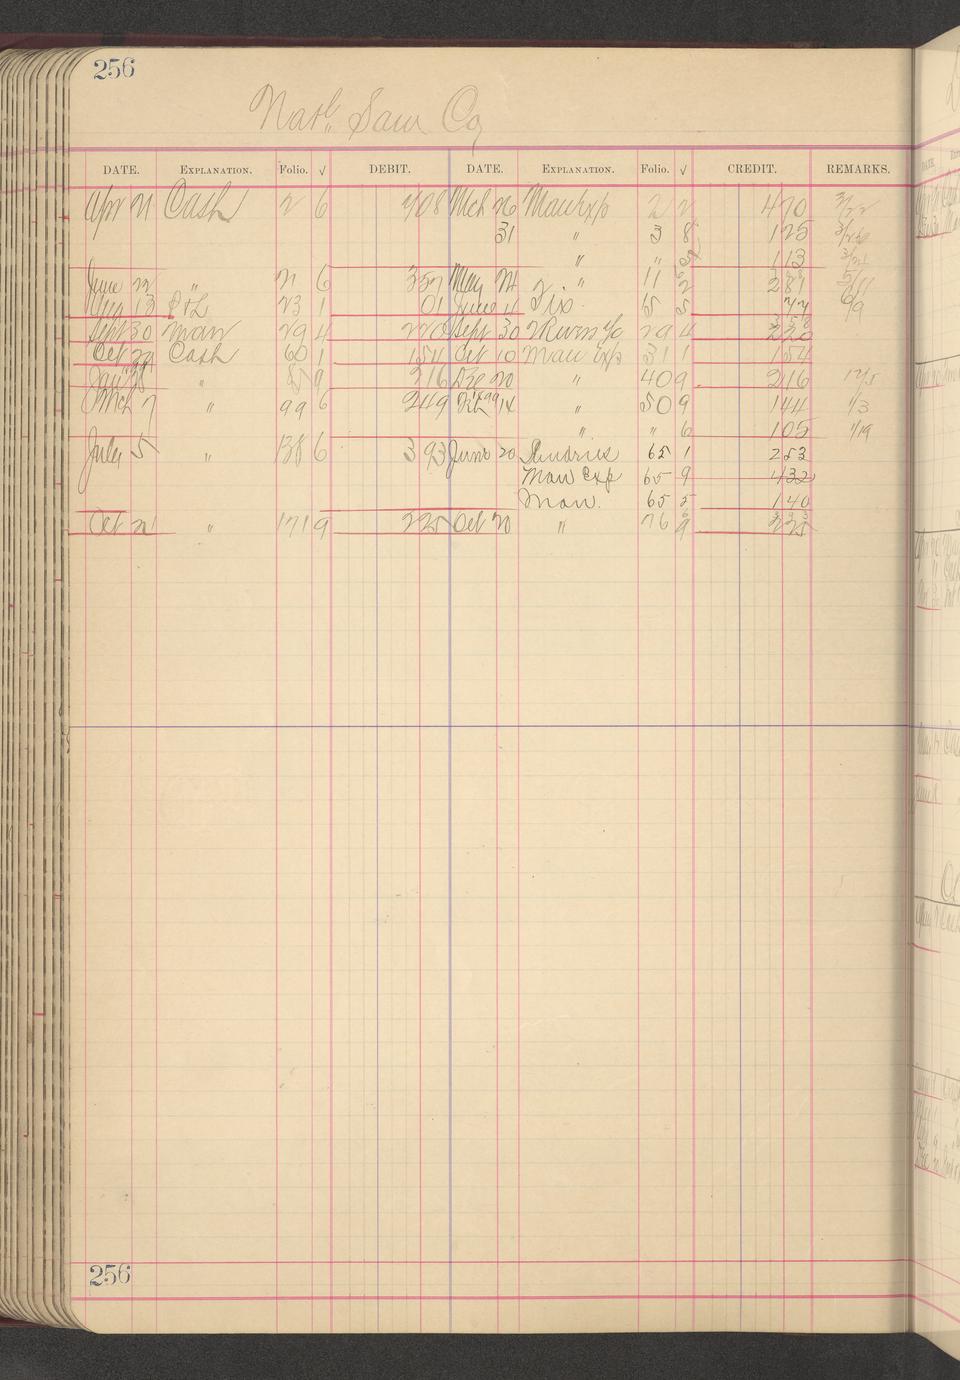 256
Natl. Saw Co
DATE. EXPLANATION. Folio. √ DEBIT. DATE. EXPLANATION. Folio. √ CREDIT. REMARKS.
Apr 21 Cash 2 6 708 Mch 26 Man Exp 2 2 470 3/22
31 " 3 8 125
" " 113 3/21
June 22 " 21 6 357 May 24 " 11 2 281 5/11
Aug 13 P & L 23 1 01 June 4 15 5 77 6/9
358
Sept 30 Man 29 4 220 Sept 30 29 4 220
Oct 29 Cash 60 1 154 Oct 10 Man Exp 31 1 154
Jan " 9 216 Dec 20 " 40 9 216 12/5
Mch 7 " 99 6 249 " 50 9 144 1/3
" " 6 105 1/19
July 5 " 138 6 393 June 20 Sundries 65 1 253
Man Exp 65 9 432
Man. 65 5 140
393
Oct 21 " 171 9 225 Oct 20 " 76 9 225
256